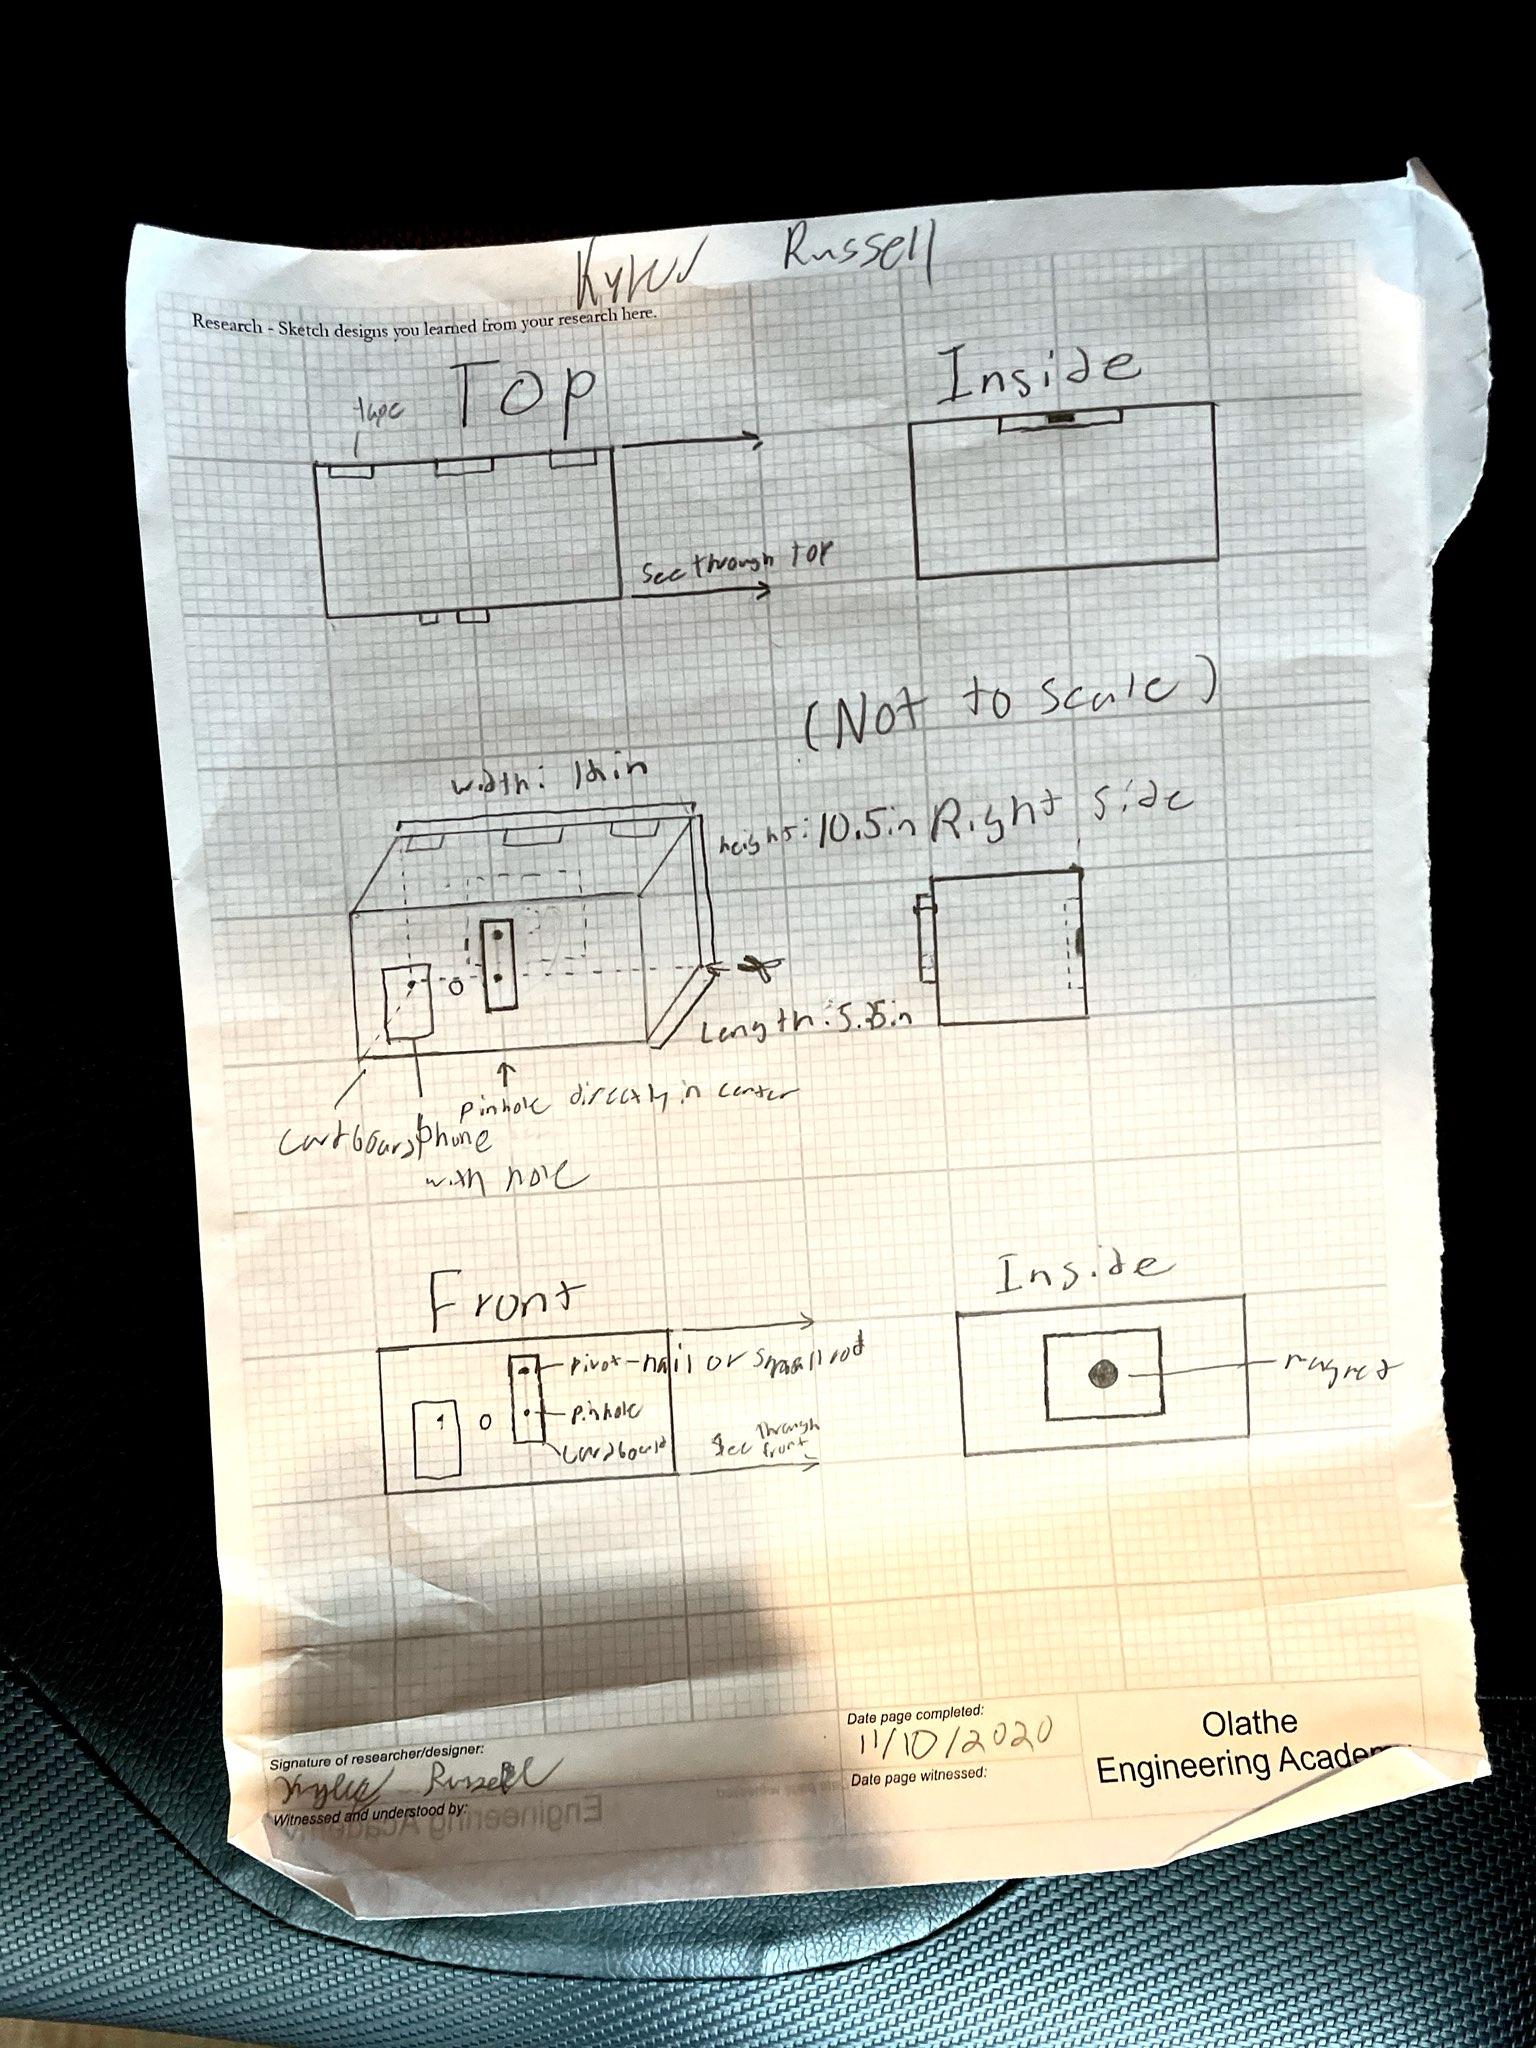 Russell
Research - Sketch designs you learned from your research here.
Top
Inside
tape
See through top
(Not to scale)
width: in
height: 10.5in
Right side
Length: 5.25in
pinhole directly in center
Cardboard
phone
with hole
Front
Inside
pivot-nail or small rod
pinhole
cardboard
See through
front
magnet
Signature of researcher/designer:
Russell
Witnessed and understood by:
Date page completed:
11/10/2020
Date page witnessed:
Olathe
Engineering Academ